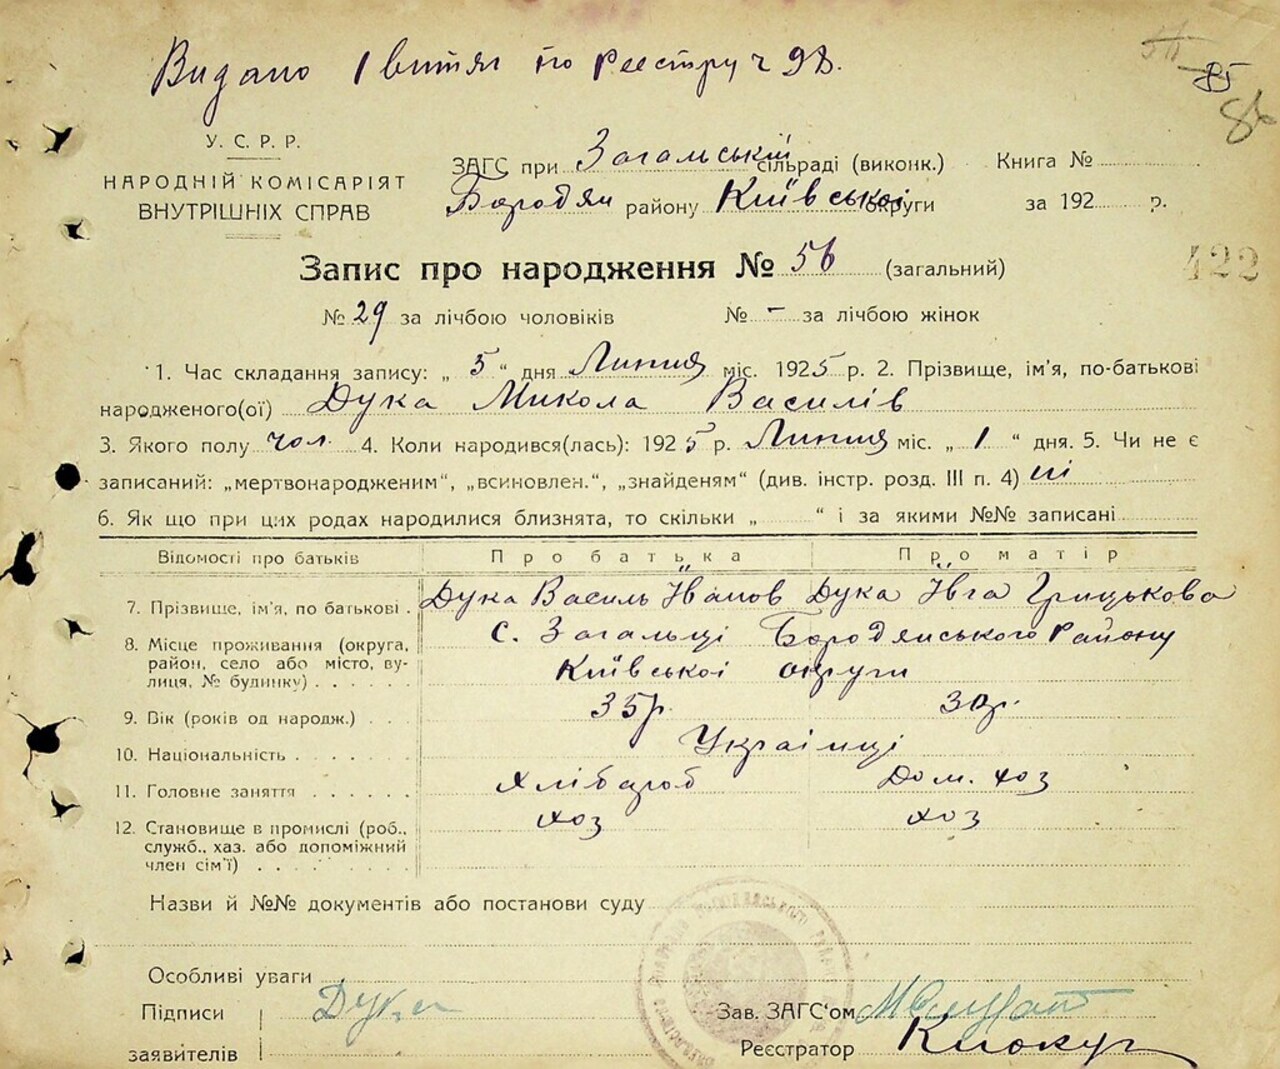 Видано 1 витяг по реєстру ч 98.
85
86
У. С. Р. Р.
НАРОДНІЙ КОМІСАРІЯТ
ВНУТРІШНІХ СПРАВ
ЗАГС при Загальській сільраді (виконк.) Книга №
Бородян району Київської округи за 192 р.
422
Запис про народження № 56 (загальний)
№ 29 за лічбою чоловіків № - за лічбою жінок
1. Час складання запису: „ 5 “ дня Липня міс. 1925 р. 2. Прізвище, ім'я, по-батькові
народженого(ої) Дука Микола Василів
3. Якого полу чол. 4. Коли народився(лась): 1925 р. Липня міс. „ 1 “ дня. 5. Чи не є
записаний: „мертвонародженим“, „всиновлен.“, „знайденям“ (див. інстр. розд. III п. 4) ні
6. Як що при цих родах народилися близнята, то скільки „ “ і за якими №№ записані
Відомості про батьків Про батька Про матір
7. Прізвище, ім'я, по батькові . Дука Василь Іванов Дука Ївга Грицькова
8. Місце проживання (округа, район, село або місто, вулиця, № будинку) . . . . . . с. Загальці Бородянського Району
Київської округи
9. Вік (років од народж.) . . 35р. 30р.
10. Національність . . . . . . Українці
11. Головне заняття . . . . . . Хлібороб Дом. хоз
12. Становище в промислі (роб., служб., хаз. або допоміжний член сім'ї) . . . . . . . хоз хоз
Назви й №№ документів або постанови суду
Особливі уваги
Підписи Дука Зав. ЗАГС'ом
заявителів Реєстратор